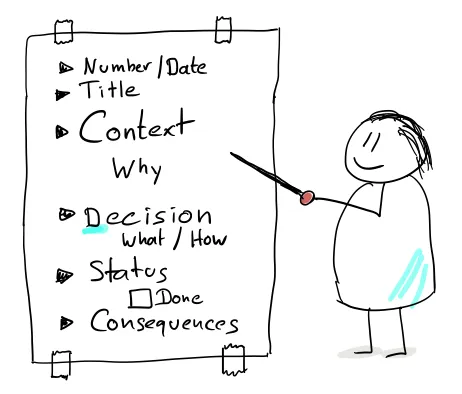 Number/Date
Title
Context
Why
Decision
What / How
Status
Done
Consequences